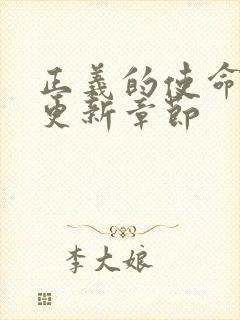 正義的使命
更新章節
李大娘